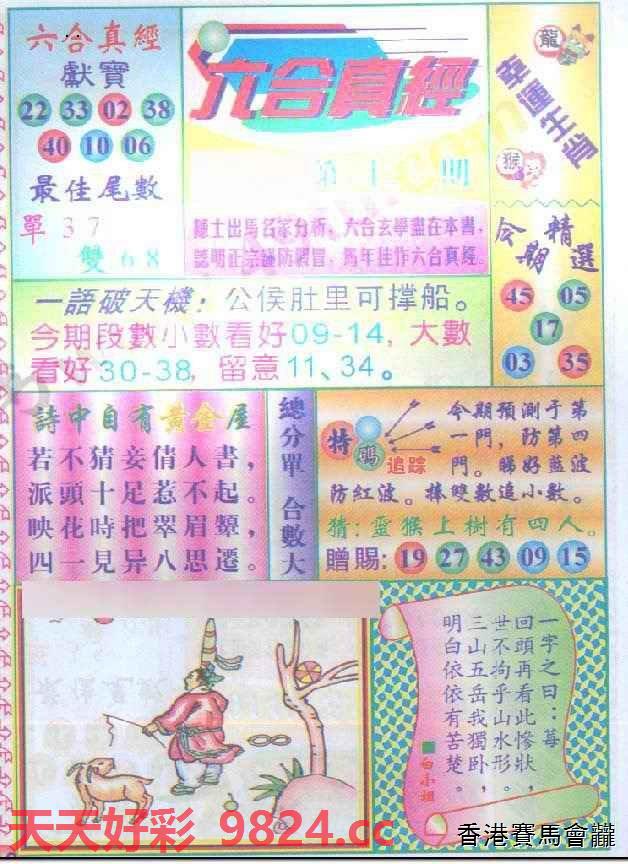 六合真經
獻寶
22 33 02 38
40 10 06
最佳尾數
單 3 7
雙 6 8
六合真經
第十 期
隱士出馬名家分析，六合玄學盡在本書，
認明正宗謹防假冒，馬年佳作六合真經。
龍
幸運生肖
猴
今期精選
45 05
17
03 35
一語破天機：公侯肚里可撑船。
今期段數小數看好09-14，大數
看好30-38，留意11、34。
詩中自有黃金屋
若不猜妾倩人書，
派頭十足惹不起。
映花時把翠眉顰，
四一見异八思遷。
總分單 合數大
特 碼
追踪
今期預測于第
一門，防第四
門。睇好藍波
防紅波。捧雙數追小數。
猜：靈猴上樹有四人。
贈賜：19 27 43 09 15
一字之曰：莓
回頭再看此慘狀，
世不拘乎山水形。
三山五岳我獨卧，
明白依依有苦楚。
白小姐
天天好彩 9824.cc
香港賽馬會